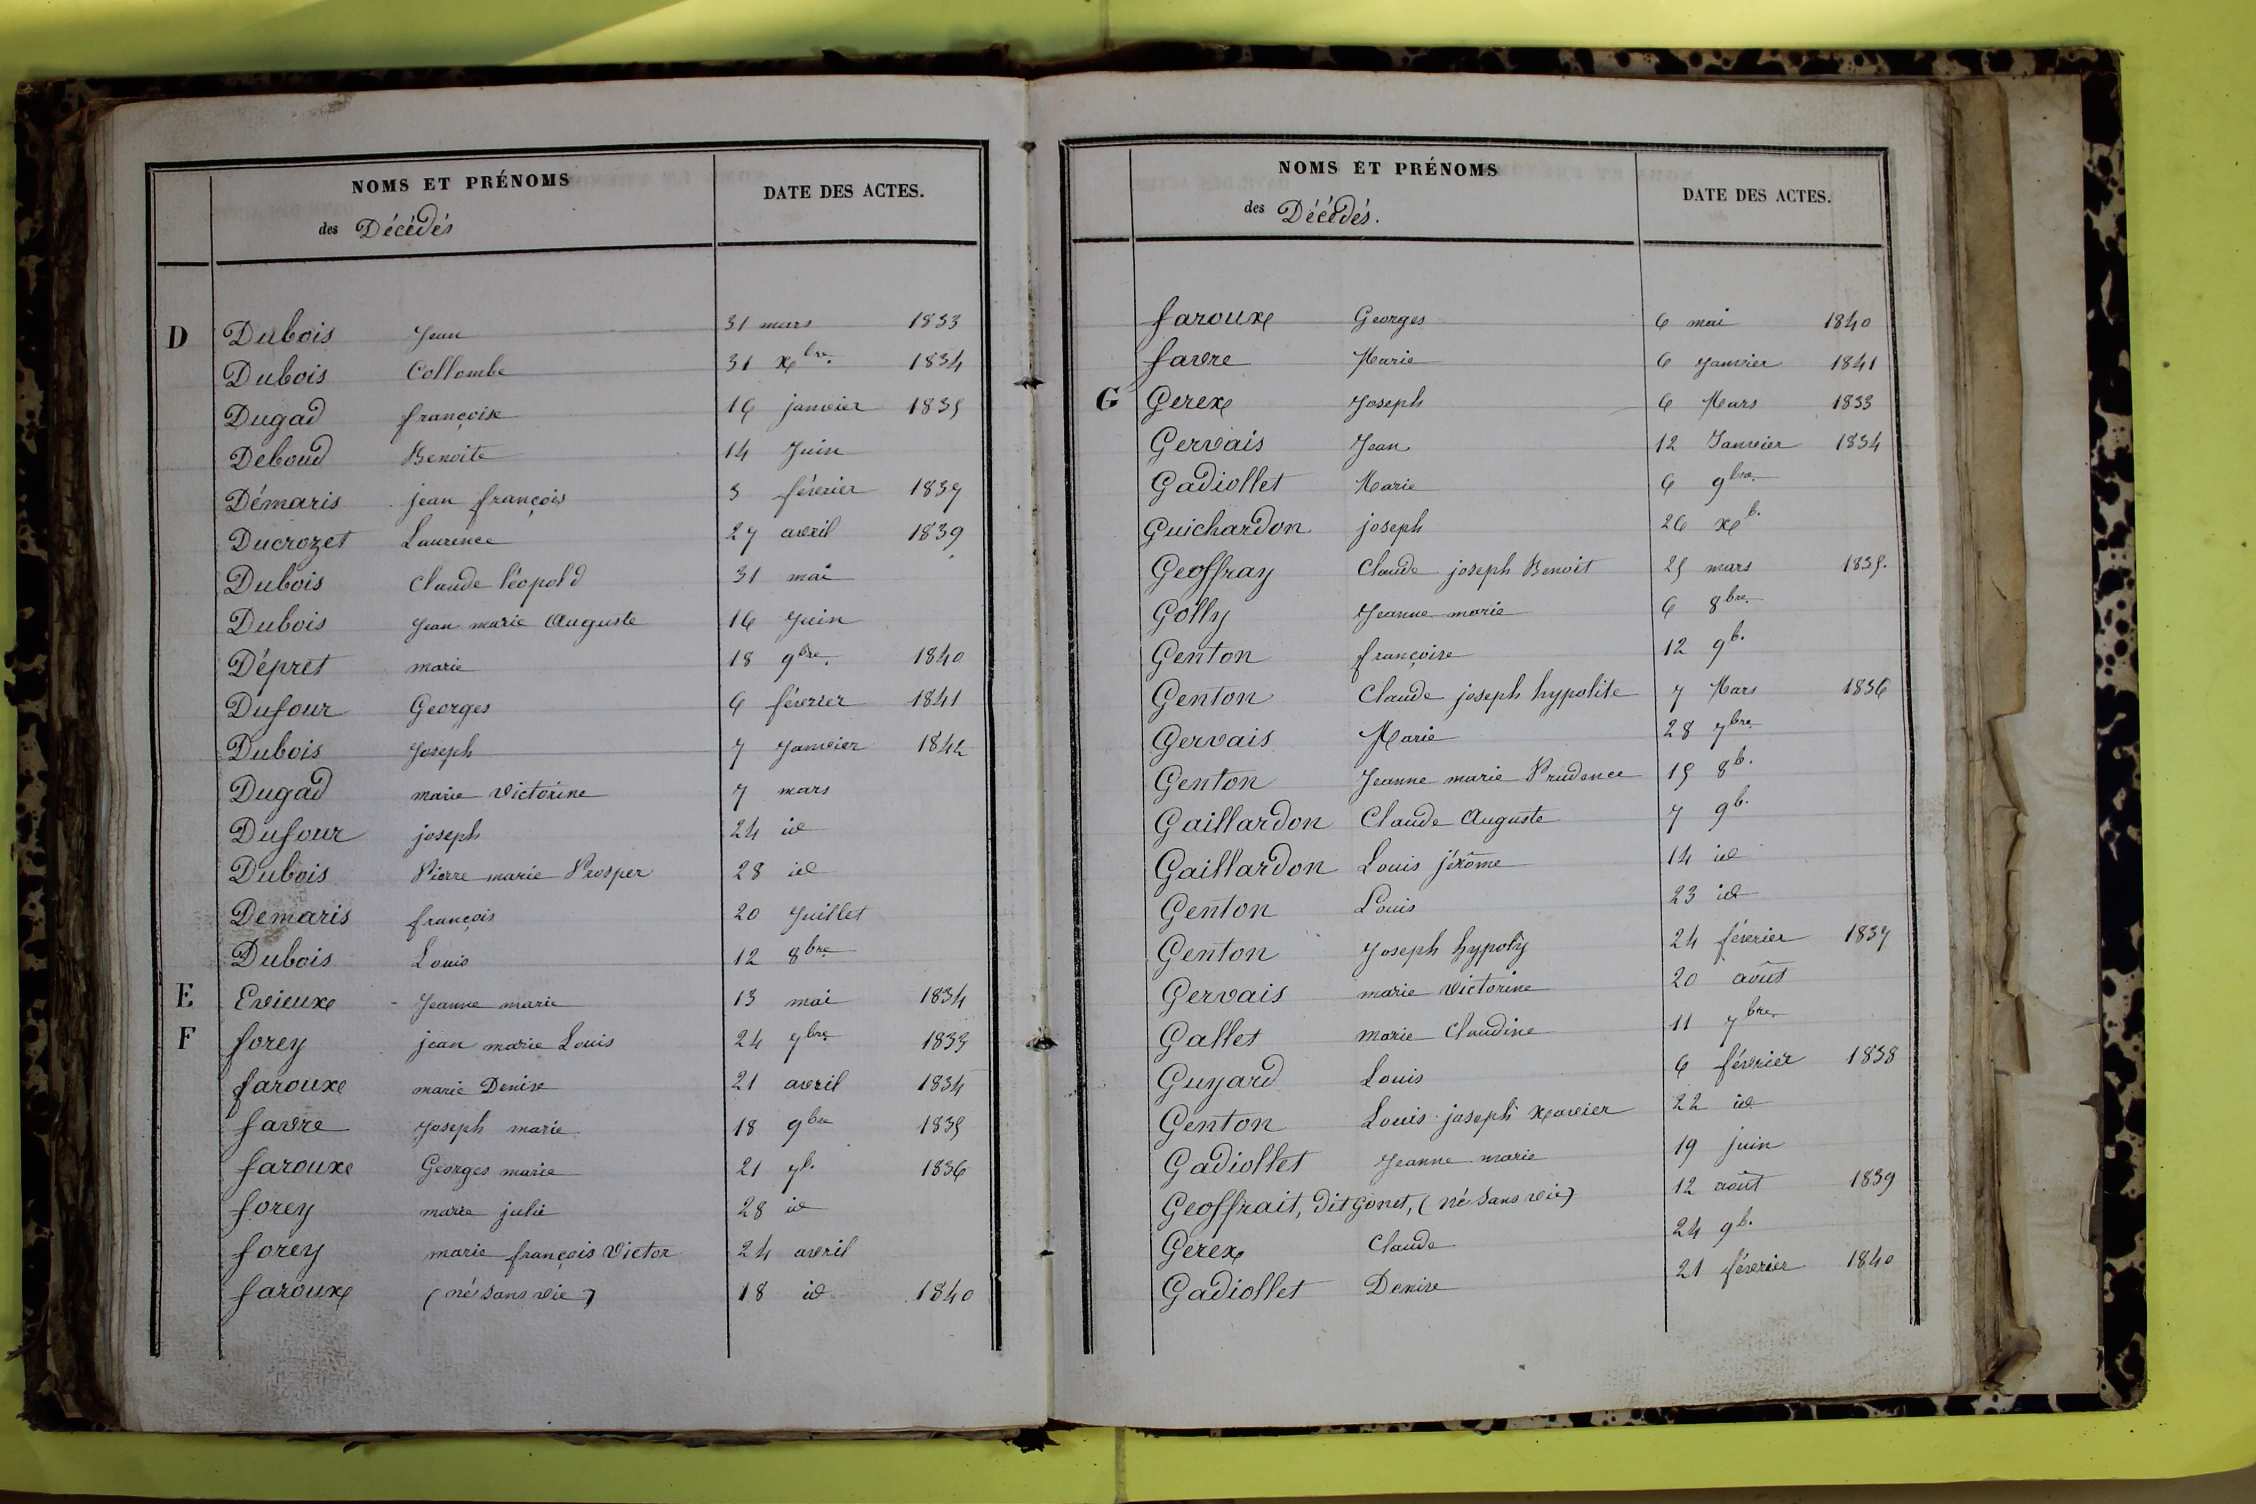 NOMS ET PRÉNOMS
des Décédés
DATE DES ACTES.
D Dubois Jean 31 mars 1833
Dubois Collombe 31 xbre. 1834
Dugad françoise 16 janvier 1835
Deboud Benoite 14 Juin
Démaris jean françois 3 février 1837
Ducrozet Laurence 27 avril 1839
Dubois Claude léopold 31 mai
Dubois Jean marie Auguste 16 Juin
Dépret marie 18 9bre. 1840
Dufour Georges 6 février 1841
Dubois Joseph 7 Janvier 1842
Dugad marie Victorine 7 mars
Dufour joseph 24 id
Dubois Pierre marie Prosper 28 id
Demaris françois 20 Juillet
Dubois Louis 12 8bre
E Evieux Jeanne marie 13 mai 1834
F forey jean marie Louis 24 7bre 1833
faroux marie Denise 21 avril 1834
favre Joseph marie 18 9bre 1835
faroux Georges marie 21 7b. 1836
forey marie julie 28 id
forey marie françois Victor 24 avril
faroux (né sans vie) 18 id 1840
NOMS ET PRÉNOMS
des Décédés.
DATE DES ACTES.
faroux Georges 6 mai 1840
favre Marie 6 Janvier 1841
G Gerex Joseph 6 Mars 1833
Gervais Jean 12 Janvier 1834
Gadiollet Marie 6 9bre.
Guichardon joseph 26 xb.
Geoffray Claude joseph Benoit 25 mars 1835.
Golly Jeanne marie 6 8bre.
Genton françoise 12 9b.
Genton Claude joseph hypolite 7 Mars 1836
Gervais Marie 28 7bre
Genton Jeanne marie Prudence 15 8b.
Gaillardon Claude Auguste 7 9b.
Gaillardon Louis jérôme 14 id
Genton Louis 23 id
Genton Joseph hypoly 24 février 1837
Gervais marie Victorine 20 août
Gallet marie Claudine 11 7bre.
Guyard Louis 6 février 1838
Genton Louis joseph Xavier 22 id
Gadiollet Jeanne marie 19 juin
Geoffrait, dit gonet, (né sans vie) 12 août 1839
Gerex Claude 24 9b.
Gadiollet Denise 21 février 1840